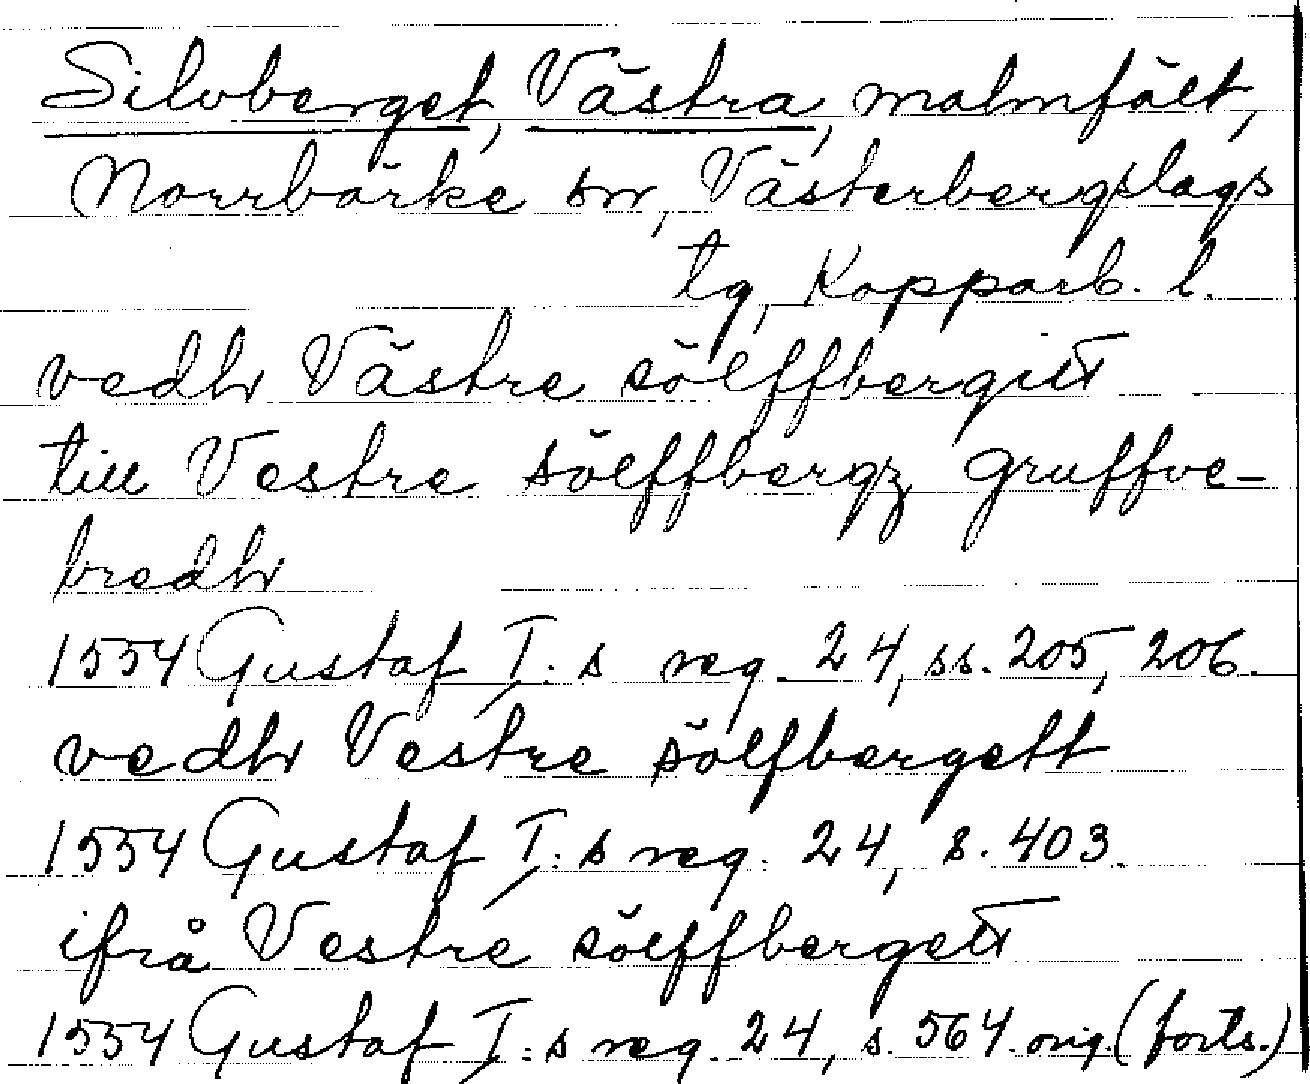 Silvberget, Västra, malmfält,
Norrbärke sn, Västerbergslags
tg, Kopparb. l.
vedh Västre sölffbergitt
till Vestre sölffbergz gruffve-
bredh
1554 Gustaf I:s reg. 24, ss. 205, 206.
vedh Vestre sölfbergett
1554 Gustaf I:s reg. 24, s. 403.
ifrå Vestre sölffbergett
1554 Gustaf I:s reg. 24, s. 564. orig (forts.)